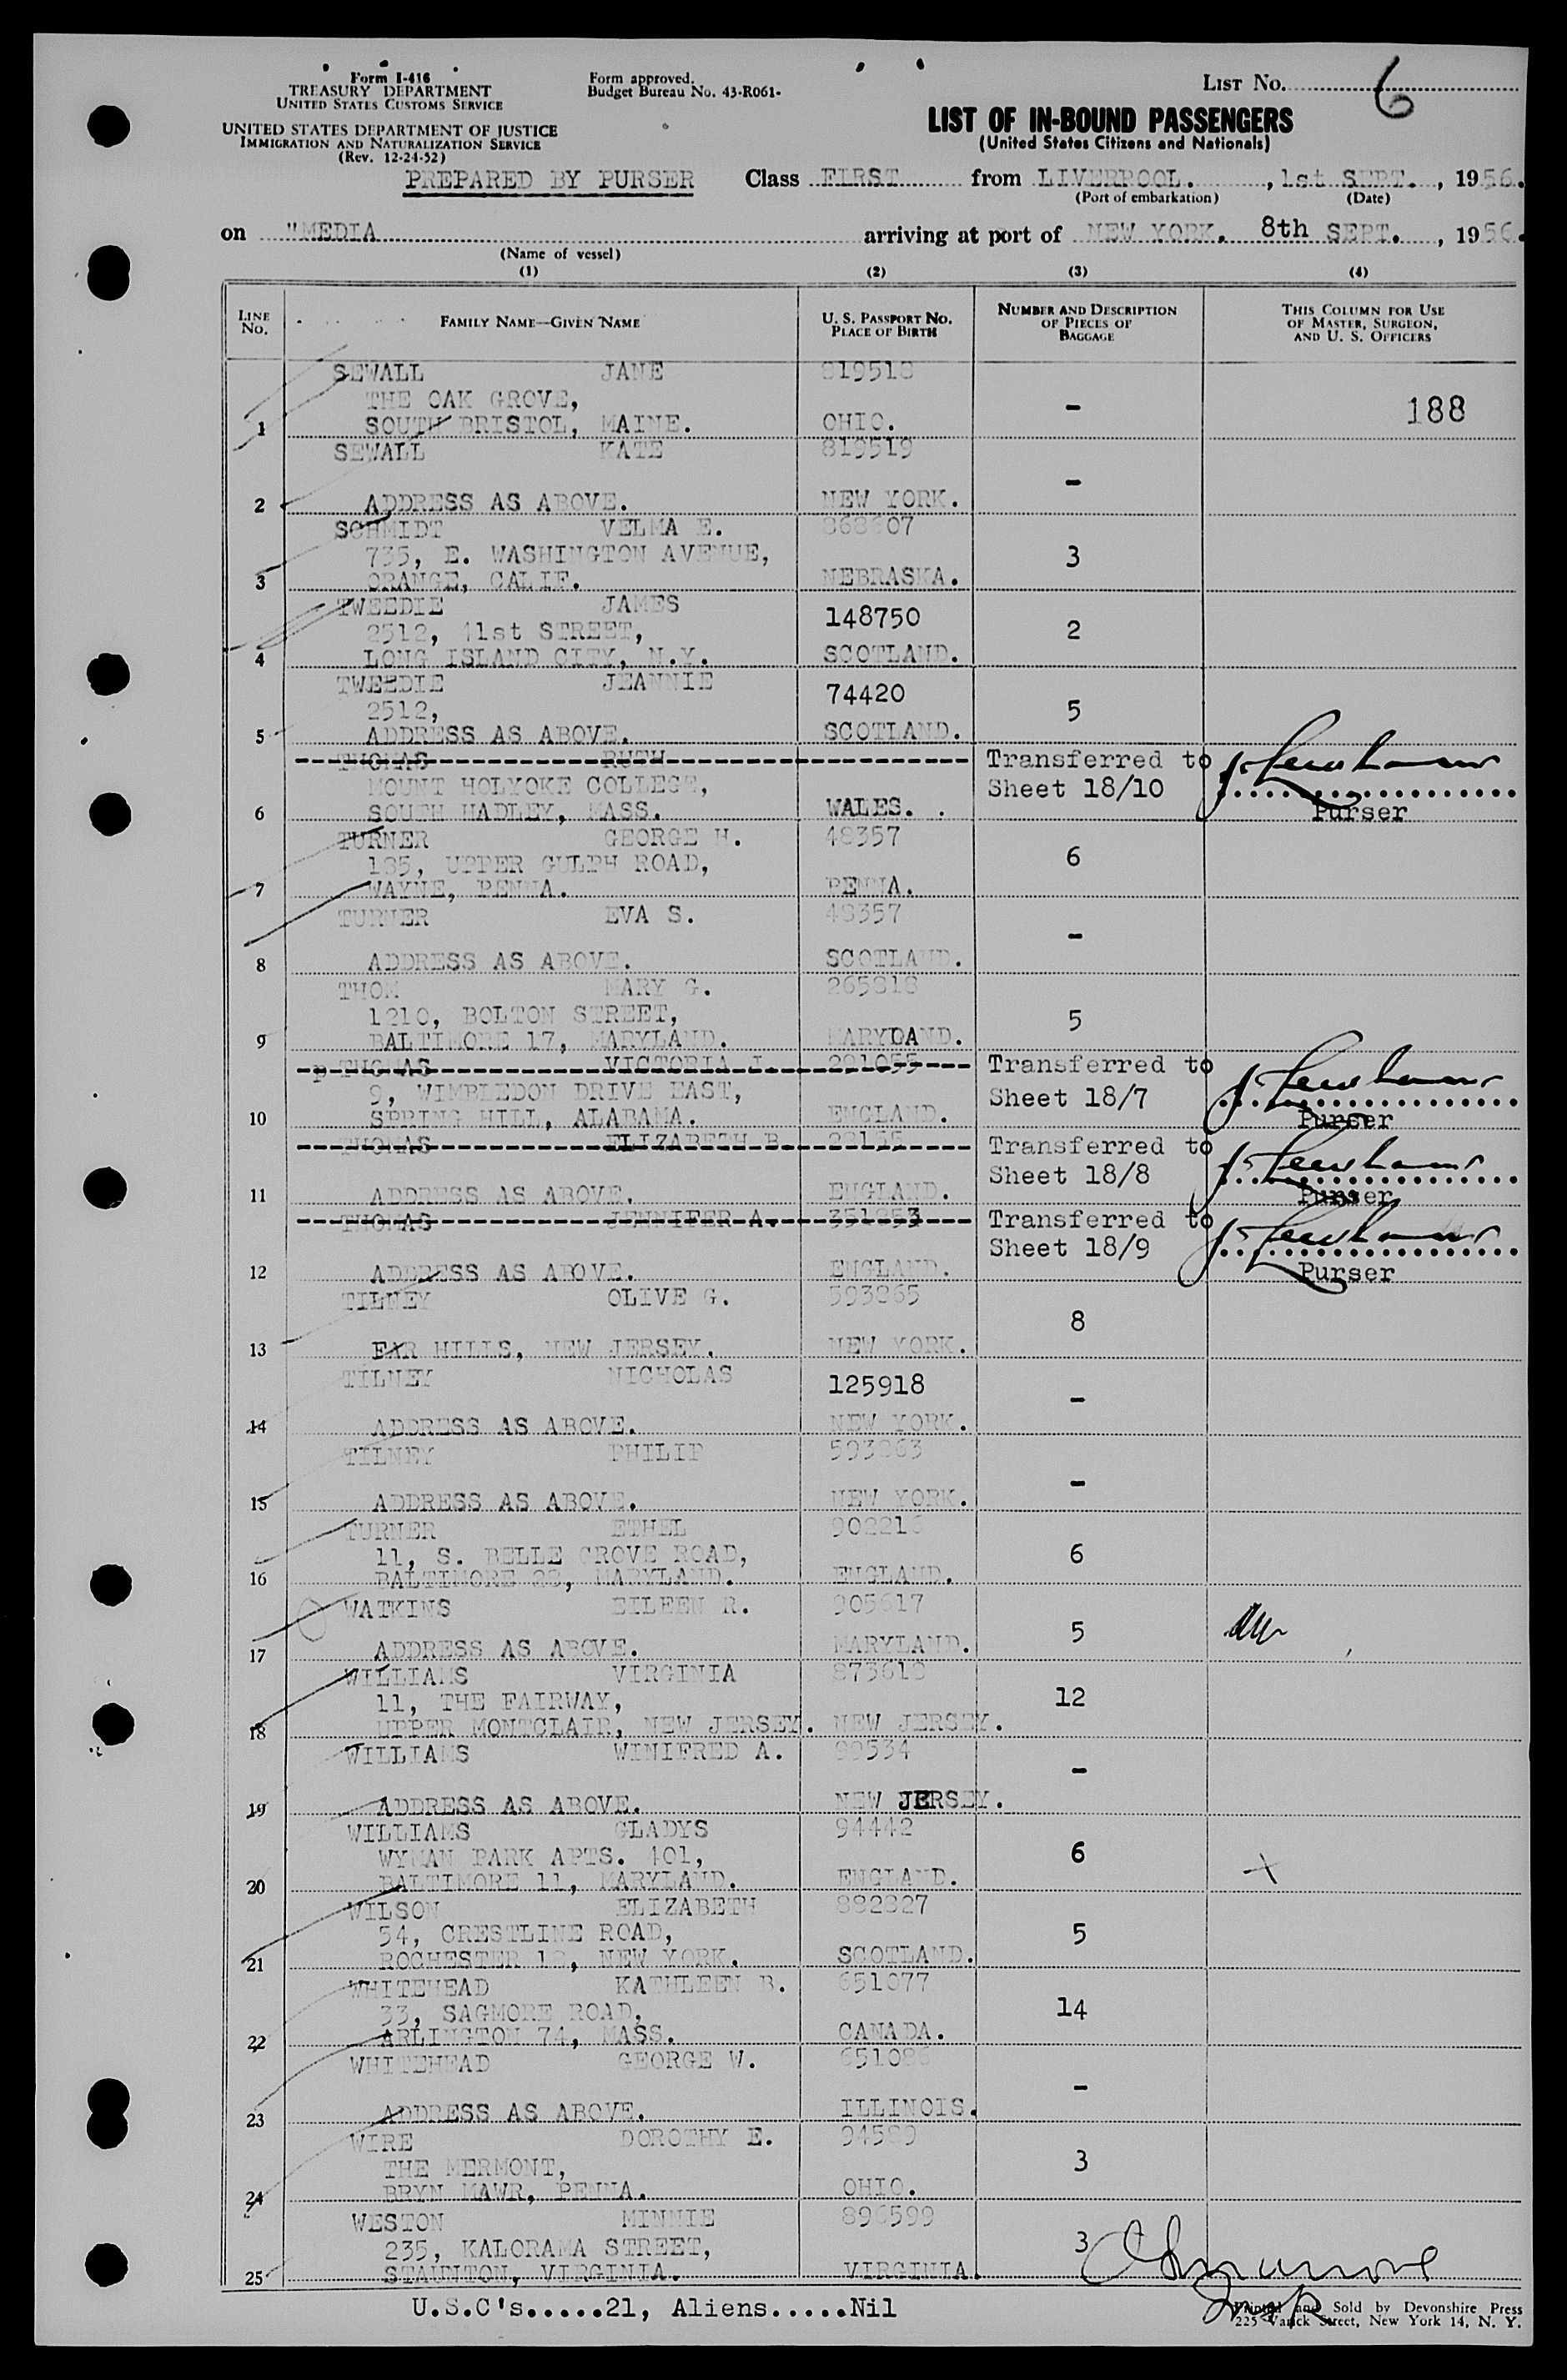 Form I-416
TREASURY DEPARTMENT
UNITED STATES CUSTOMS SERVICE
UNITED STATES DEPARTMENT OF JUSTICE
IMMIGRATION AND NATURALIZATION SERVICE
(Rev. 12-24-52)
PREPARED BY PURSER
Form approved.
Budget Bureau No. 43-R061-
LIST No. 6
LIST OF IN-BOUND PASSENGERS
(United States Citizens and Nationals)
Class FIRST from LIVERPOOL. , 1st SEPT. , 1956.
(Port of embarkation) (Date)
on "MEDIA arriving at port of NEW YORK. 8th SEPT. , 1956.
(Name of vessel)
(1) (2) (3) (4)
LINE No. FAMILY NAME—GIVEN NAME U. S. PASSPORT No. PLACE OF BIRTH NUMBER AND DESCRIPTION OF PIECES OF BAGGAGE THIS COLUMN FOR USE OF MASTER, SURGEON, AND U. S. OFFICERS
SEWALL JANE 819518
THE OAK GROVE, - 188
1 SOUTH BRISTOL, MAINE. OHIO.
SEWALL KATE 819519
-
2 ADDRESS AS ABOVE. NEW YORK.
SCHMIDT VELMA E.
735, E. WASHINGTON AVENUE, 3
3 ORANGE, CALIF. NEBRASKA.
TWEEDIE JAMES 148750
2512, 41st STREET, 2
4 LONG ISLAND CITY, N.Y. SCOTLAND.
TWEEDIE JEANNIE 74420
2512, 5
5 ADDRESS AS ABOVE. SCOTLAND.
THOMAS RUTH Transferred to
MOUNT HOLYOKE COLLEGE, Sheet 18/10
6 SOUTH HADLEY, MASS. WALES. . Purser
TURNER GEORGE H. 48357
185, UPPER GULPH ROAD, 6
7 WAYNE, PENNA. PENNA.
TURNER EVA S. 48357
-
8 ADDRESS AS ABOVE. SCOTLAND.
THOM MARY G. 265818
1210, BOLTON STREET, 5
9 BALTIMORE 17, MARYLAND. MARYLAND.
THOMAS VICTORIA J. 291055 Transferred to
9, WIMBLEDON DRIVE EAST, Sheet 18/7
10 SPRING HILL, ALABAMA. ENGLAND. Purser
THOMAS ELIZABETH B. Transferred to
Sheet 18/8
11 ADDRESS AS ABOVE. ENGLAND. Purser
THOMAS JENNIFER A. Transferred to
Sheet 18/9
12 ADDRESS AS ABOVE. ENGLAND. Purser
TILNEY OLIVE G. 593865
8
13 FAR HILLS, NEW JERSEY. NEW YORK.
TILNEY NICHOLAS 125918
-
14 ADDRESS AS ABOVE. NEW YORK.
TILNEY PHILIP 593863
-
15 ADDRESS AS ABOVE. NEW YORK.
TURNER ETHEL 902216
11, S. BELLE GROVE ROAD, 6
16 BALTIMORE 28, MARYLAND. ENGLAND.
WATKINS EILEEN R. 905617
5
17 ADDRESS AS ABOVE. MARYLAND.
WILLIAMS VIRGINIA 873618
11, THE FAIRWAY, 12
18 UPPER MONTCLAIR, NEW JERSEY. NEW JERSEY.
WILLIAMS WINIFRED A.
-
19 ADDRESS AS ABOVE. NEW JERSEY.
WILLIAMS GLADYS 94442
WYMAN PARK APTS. 401, 6
20 BALTIMORE 11, MARYLAND. ENGLAND.
WILSON ELIZABETH 882827
54, CRESTLINE ROAD, 5
21 ROCHESTER 18, NEW YORK. SCOTLAND.
WHITEHEAD KATHLEEN B. 651077
33, SAGMORE ROAD, 14
22 ARLINGTON 74, MASS. CANADA.
WHITEHEAD GEORGE W.
-
23 ADDRESS AS ABOVE. ILLINOIS.
WIRE DOROTHY E.
THE MERMONT, 3
24 BRYN MAWR, PENNA. OHIO.
WESTON MINNIE 896599
235, KALORAMA STREET, 3
25 STAUNTON, VIRGINIA. VIRGINIA.
U.S.C's.....21, Aliens.....Nil
Printed and Sold by Devonshire Press
225 Varick Street, New York 14, N. Y.